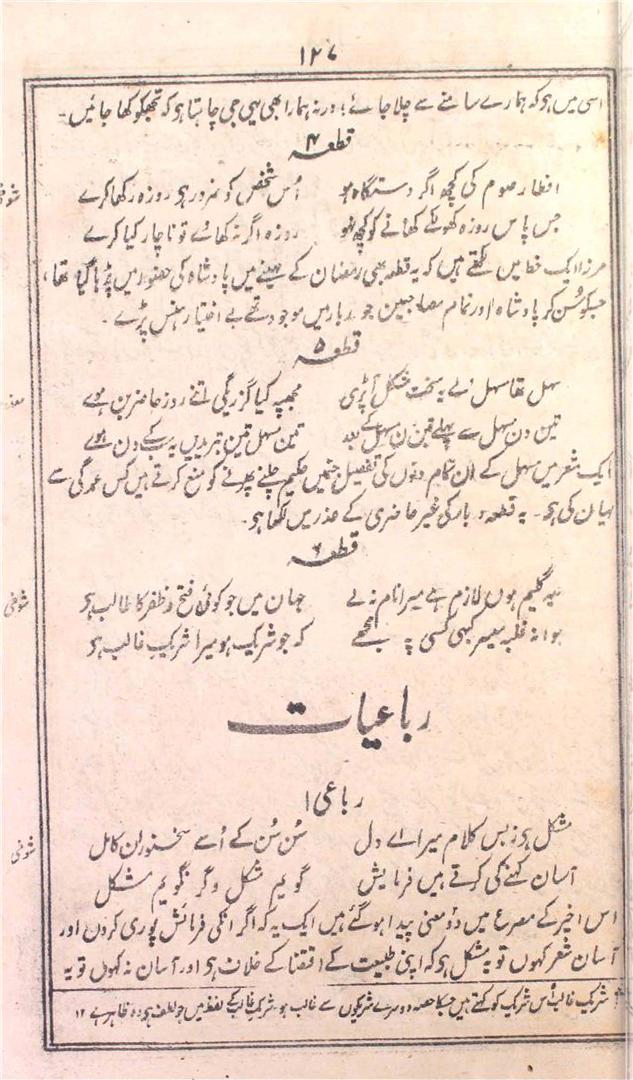 ۱۲۷
اسی میں ہو کہ ہمارے سامنے سے چلا جائے؛ ورنہ ہمارا بھی یہی جی چاہتا ہو کہ تجھکو کھا جائیں۔
قطعہ ۴
افطار صوم کی کچھ اگر دستگاہ ہو اُس شخص کو ضرور ہو روزہ رکھا کرے
شوخی
جس پاس روزہ کھولکے کھانے کو کچھ نہو روزہ اگر نہ کھائے تو ناچار کیا کرے
مرزا ایک خط میں لکھتے ہیں کہ یہ قطعہ بھی رمضان کے مہینے میں پادشاہ کی حضور میں پڑھا گیا تھا،
جسکو سُن کر پادشاہ اور تمام مصاحبین جو دربار میں موجود تھے بے اختیار ہنس پڑے۔
قطعہ ۵
سہل تھا مسہل ولے یہ سخت مشکل آپڑی مجھپہ کیا گزریگی اتنے روز حاضر بن ہوے
تین دن مسہل سے پہلے تین دن مسہل کے بعد تین مسہل تین تبریدیں یہ سب کے دن ہوے
ایک شعر میں مسہل کے ان تمام دنوں کی تفصیل جنمیں حکیم چلنے پھرنے کو منع کرتے ہیں کس عمدگی سے
بیان کی ہو۔ یہ قطعہ دربار کی غیر حاضری کے عذر میں لکھا ہو۔
قطعہ ۶
سیہ گلیم ہوں لازم ہے میرا نام نہ لے جہان میں جو کوئی فتح و ظفر کا طالب ہو
شوخی
ہوا نہ غلبہ میسر کبھی کسی پہ مجھے کہ جو شریک ہو میرا شریک غالب ہو
رباعیات
رباعی ۱
مشکل ہو زبس کلام میرا اے دل سُن سُن کے اُسے سخنوران کامل
شوخی
آسان کہنے کی کرتے ہیں فرمایش گویم مشکل وگر نگویم مشکل
اس اخیر کے مصرع میں دو معنی پیدا ہوگئے ہیں ایک یہ کہ اگر انکی فرمائش پوری کروں اور
آسان شعر کہوں تو یہ مشکل ہو کہ اپنی طبیعت کے اقتضا کے خلاف ہو اور آسان نہ کہوں تو یہ
شریک غالب اُس شریک کو کہتے ہیں جسکا حصہ دوسرے شریکوں سے غالب ہو۔ شریک غالب کے لفظ میں جو لطف ہو وہ ظاہر ہے ۱۲